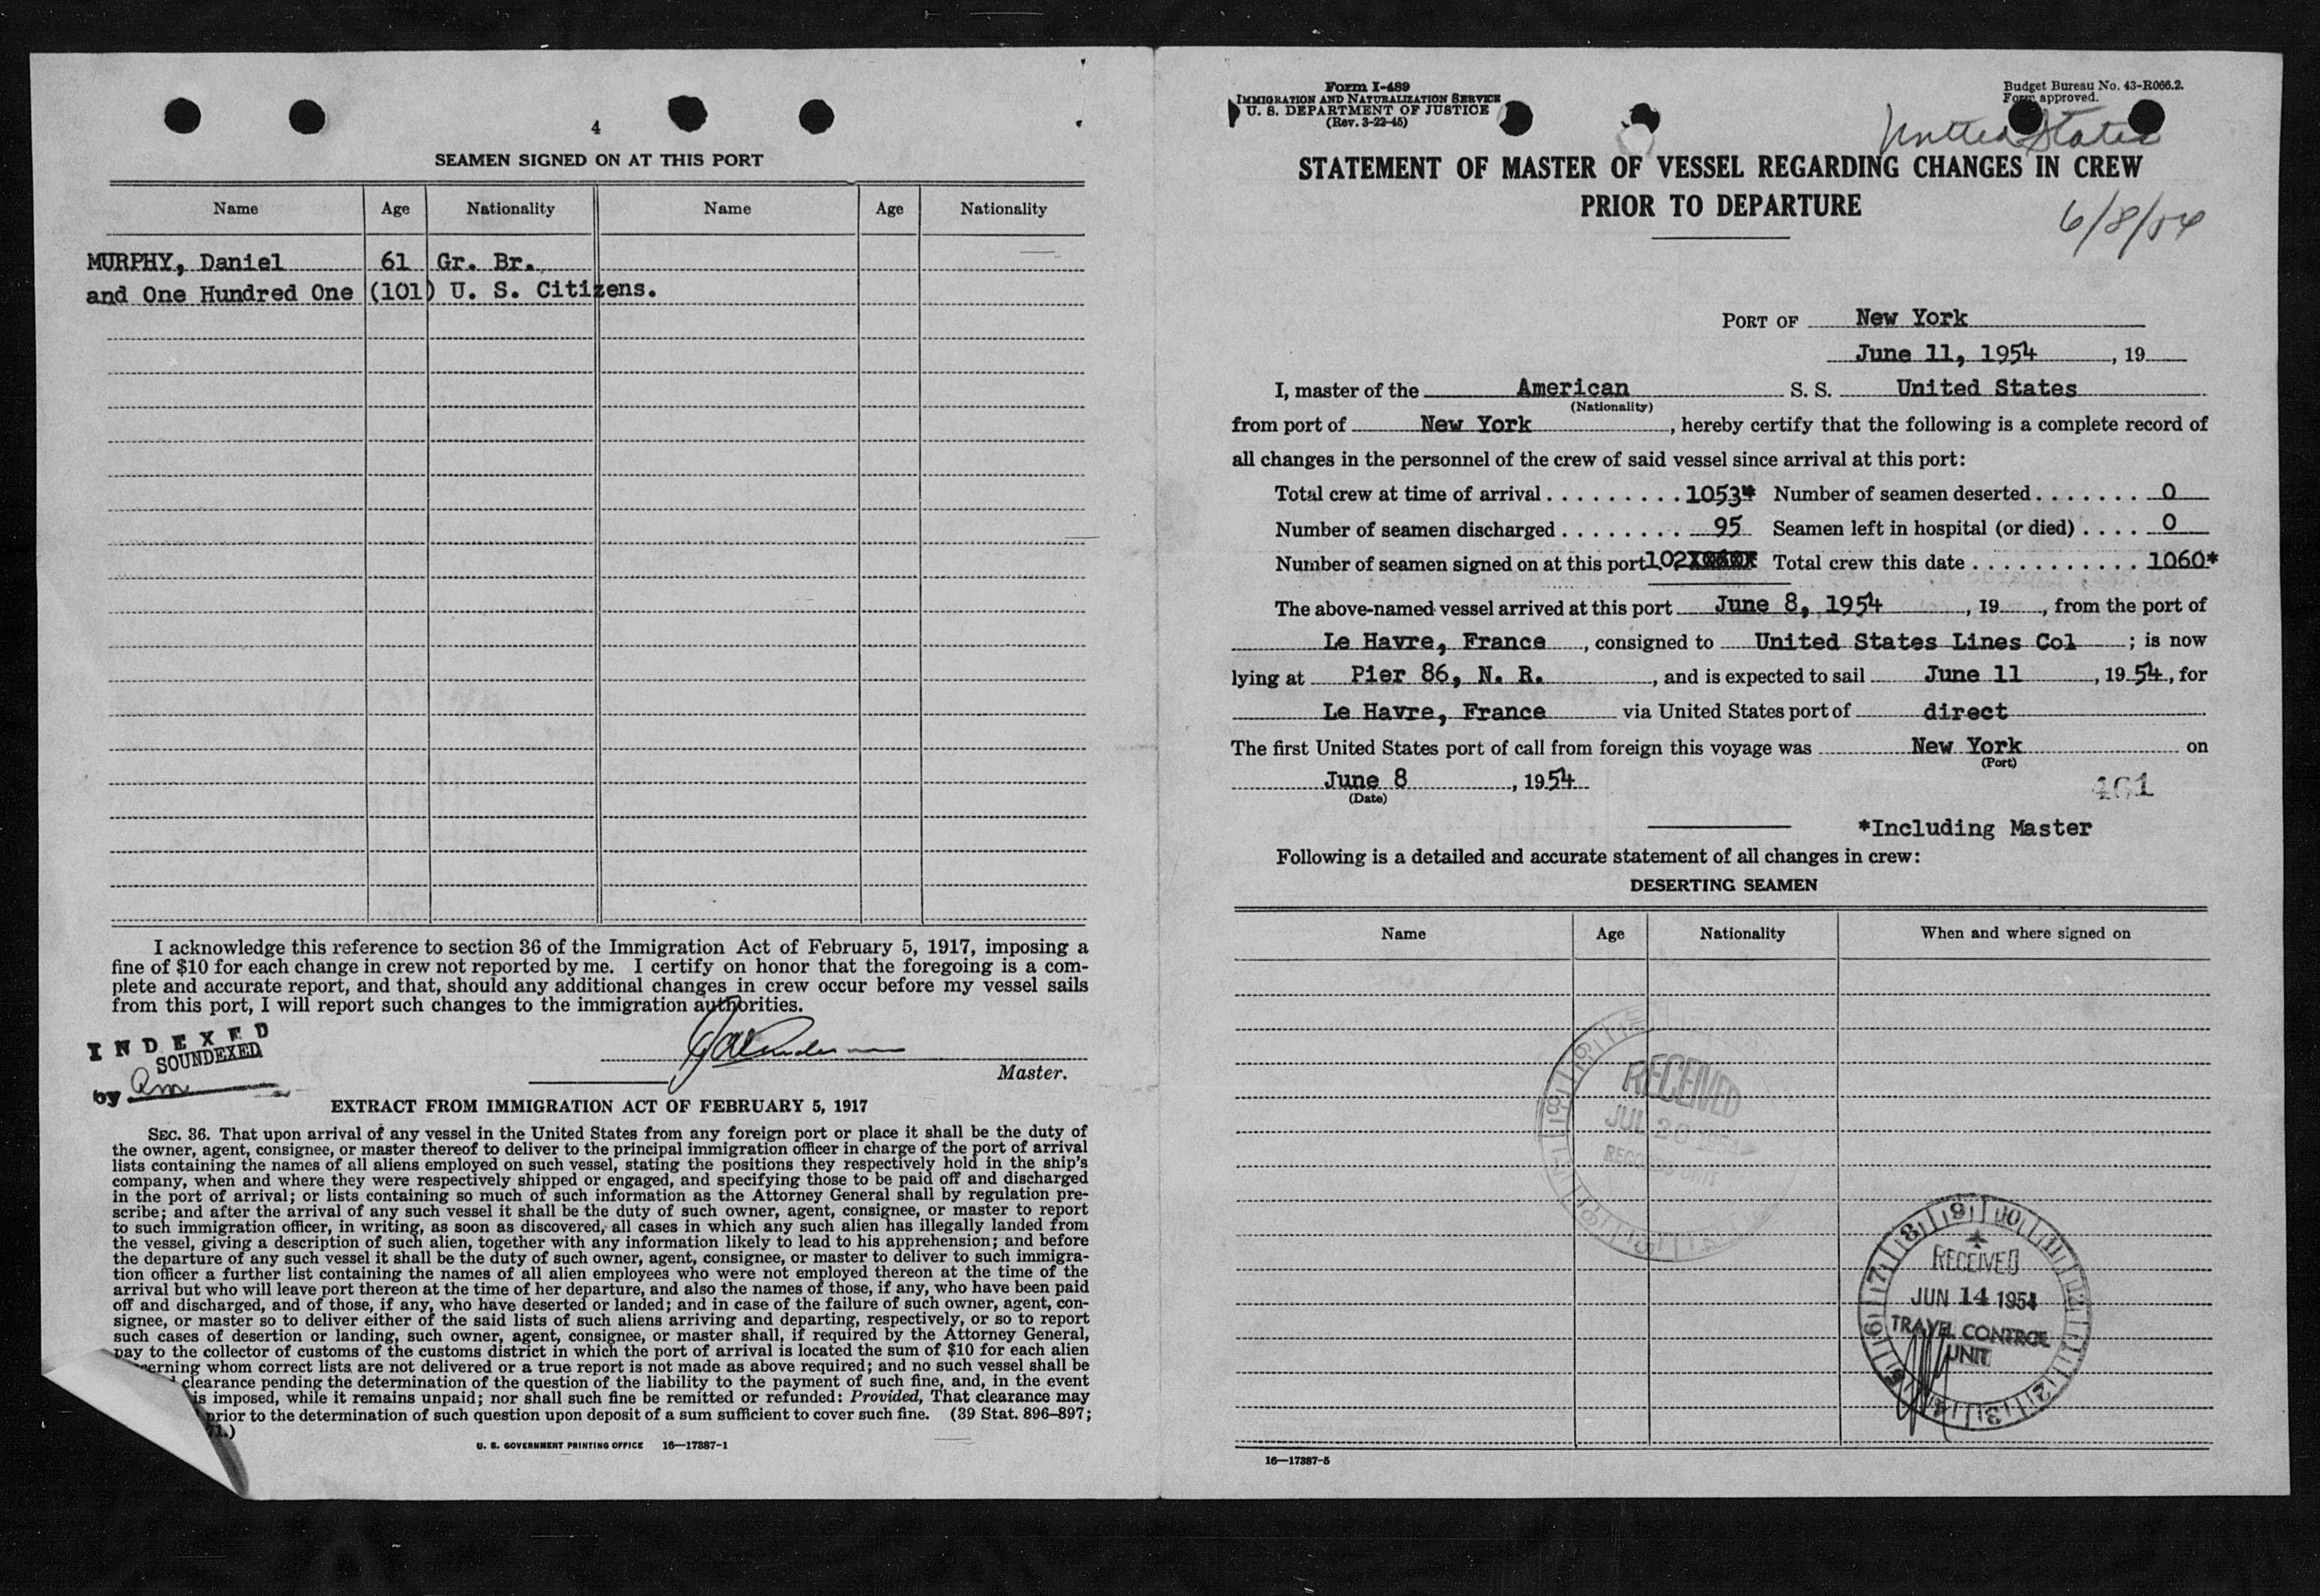 4
SEAMEN SIGNED ON AT THIS PORT
Name Age Nationality Name Age Nationality
MURPHY, Daniel 61 Gr. Br.
and One Hundred One (101) U. S. Citizens.
I acknowledge this reference to section 36 of the Immigration Act of February 5, 1917, imposing a
fine of $10 for each change in crew not reported by me. I certify on honor that the foregoing is a com-
plete and accurate report, and that, should any additional changes in crew occur before my vessel sails
from this port, I will report such changes to the immigration authorities.
INDEXED
SOUNDEXED
by
Master.
EXTRACT FROM IMMIGRATION ACT OF FEBRUARY 5, 1917
SEC. 36. That upon arrival of any vessel in the United States from any foreign port or place it shall be the duty of
the owner, agent, consignee, or master thereof to deliver to the principal immigration officer in charge of the port of arrival
lists containing the names of all aliens employed on such vessel, stating the positions they respectively hold in the ship's
company, when and where they were respectively shipped or engaged, and specifying those to be paid off and discharged
in the port of arrival; or lists containing so much of such information as the Attorney General shall by regulation pre-
scribe; and after the arrival of any such vessel it shall be the duty of such owner, agent, consignee, or master to report
to such immigration officer, in writing, as soon as discovered, all cases in which any such alien has illegally landed from
the vessel, giving a description of such alien, together with any information likely to lead to his apprehension; and before
the departure of any such vessel it shall be the duty of such owner, agent, consignee, or master to deliver to such immigra-
tion officer a further list containing the names of all alien employees who were not employed thereon at the time of the
arrival but who will leave port thereon at the time of her departure, and also the names of those, if any, who have been paid
off and discharged, and of those, if any, who have deserted or landed; and in case of the failure of such owner, agent, con-
signee, or master so to deliver either of the said lists of such aliens arriving and departing, respectively, or so to report
such cases of desertion or landing, such owner, agent, consignee, or master shall, if required by the Attorney General,
pay to the collector of customs of the customs district in which the port of arrival is located the sum of $10 for each alien
erning whom correct lists are not delivered or a true report is not made as above required; and no such vessel shall be
clearance pending the determination of the question of the liability to the payment of such fine, and, in the event
is imposed, while it remains unpaid; nor shall such fine be remitted or refunded: Provided, That clearance may
prior to the determination of such question upon deposit of a sum sufficient to cover such fine. (39 Stat. 896–897;
71.)
U. S. GOVERNMENT PRINTING OFFICE 16—17387-1
Form I-489
IMMIGRATION AND NATURALIZATION SERVICE
U. S. DEPARTMENT OF JUSTICE
(Rev. 3-22-45)
Budget Bureau No. 43-R066.2.
Form approved.
United States
STATEMENT OF MASTER OF VESSEL REGARDING CHANGES IN CREW
PRIOR TO DEPARTURE
6/8/54
PORT OF New York
June 11, 1954, 19
I, master of the American S. S. United States
(Nationality)
from port of New York, hereby certify that the following is a complete record of
all changes in the personnel of the crew of said vessel since arrival at this port:
Total crew at time of arrival . . . . . . . . . 1053* Number of seamen deserted . . . . . . . 0
Number of seamen discharged . . . . . . . . 95 Seamen left in hospital (or died) . . . . 0
Number of seamen signed on at this port 102 Total crew this date . . . . . . . . . . . 1060*
The above-named vessel arrived at this port June 8, 1954, 19, from the port of
Le Havre, France, consigned to United States Lines Col; is now
lying at Pier 86, N. R., and is expected to sail June 11, 1954, for
Le Havre, France via United States port of direct
The first United States port of call from foreign this voyage was New York on
(Port)
June 8, 1954
(Date)
461
*Including Master
Following is a detailed and accurate statement of all changes in crew:
DESERTING SEAMEN
Name Age Nationality When and where signed on
RECEIVED
JUL 20
RECORDS UNIT
RECEIVED
JUN 14 1954
TRAVEL CONTROL
UNIT
16—17387-5